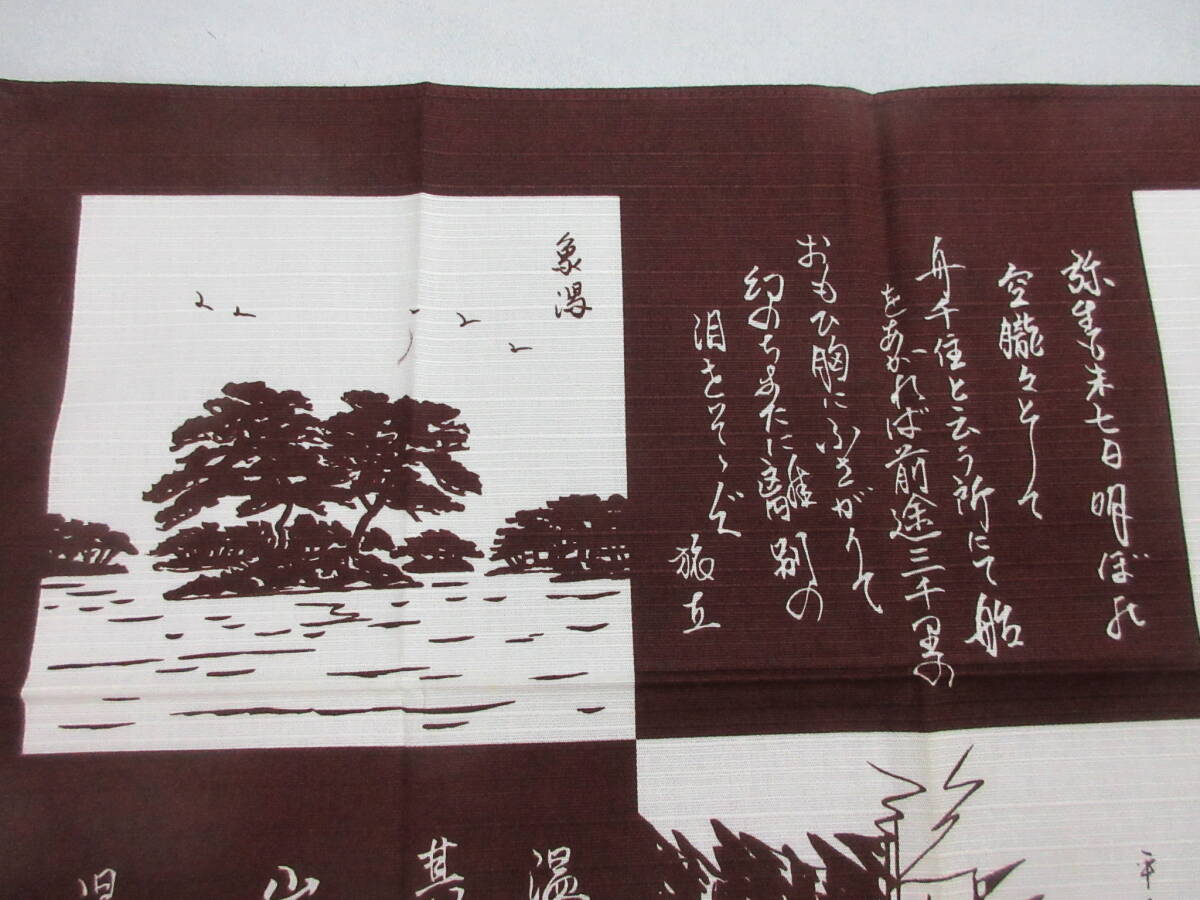 弥生も末七日明ぼの
空朧々として
舟千住と云う所にて船
をあがれば前途三千里の
おもひ胸にふさがりて
幻のちまたに離別の
泪をそゝぐ 旅立
象潟
温
其
山